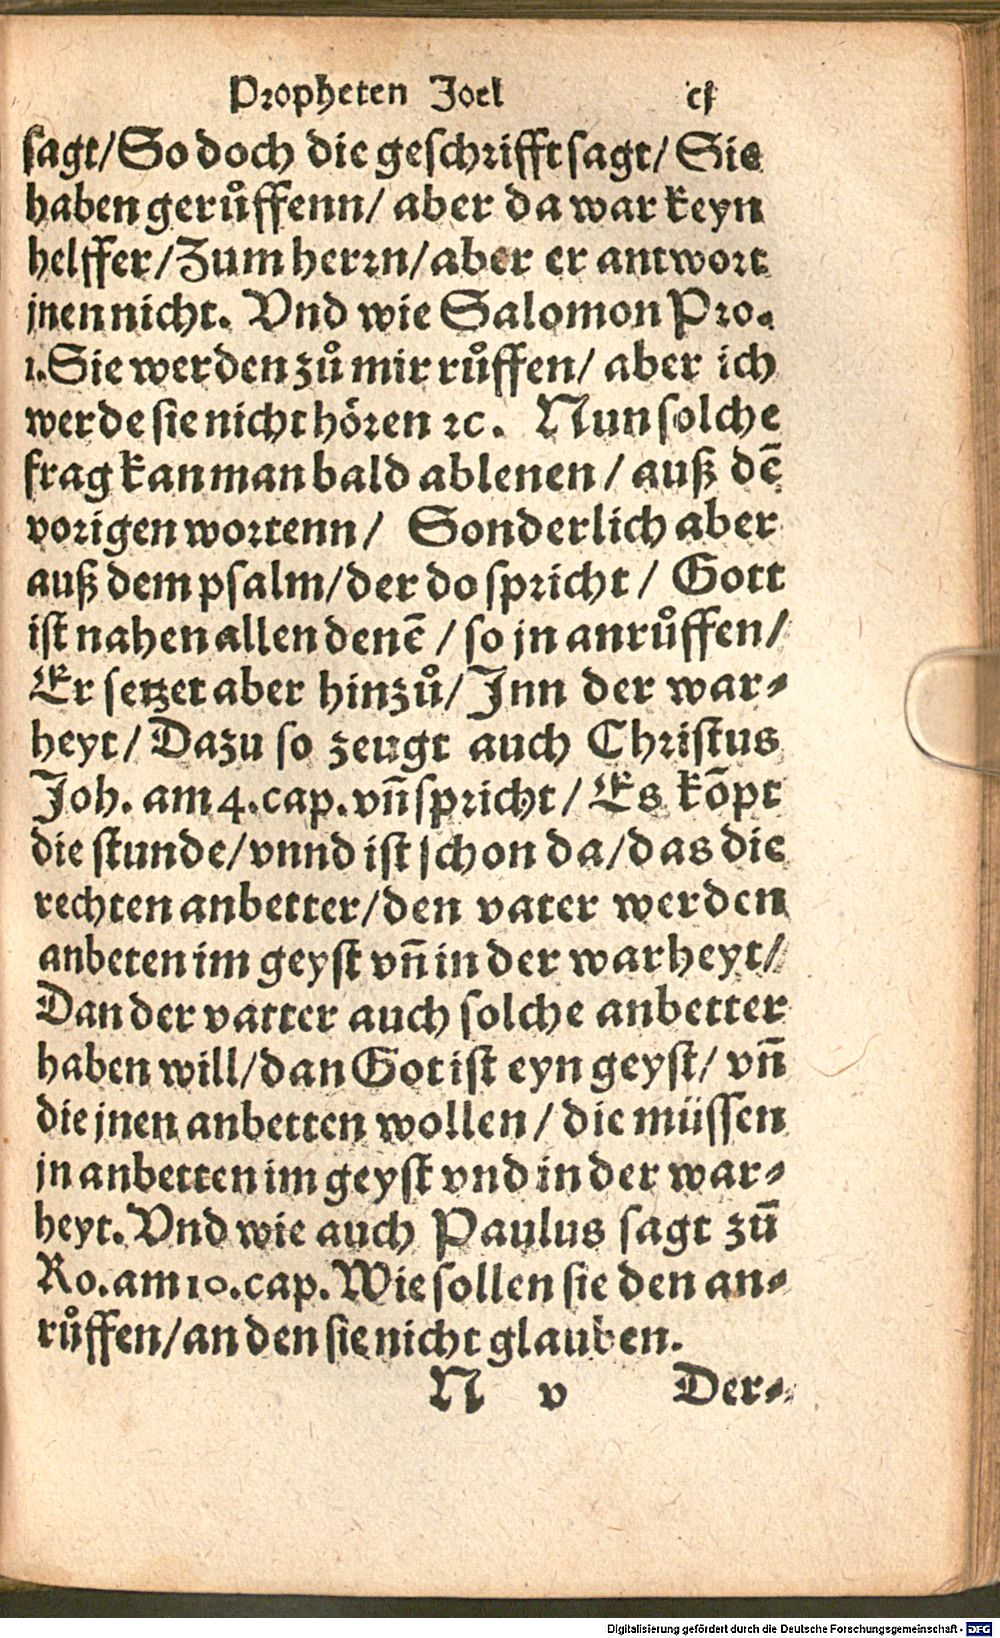 Propheten Joel cj
sagt/So doch die geschrifft sagt/ Sie
haben gerůffenn/ aber da war keyn
helffer/Zum herrn/aber er antwort
jnen nicht. Vnd wie Salomon Pro.
1.Sie werden zů mir růffen/ aber ich
werde sie nicht hören ꝛc. Nun solche
frag kan man bald ablenen / auß dē
vorigen wortenn/ Sonderlich aber
auß dem psalm/der do spricht / Gott
ist nahen allen denē / so jn anrůffen/
Er setzet aber hinzů/ Jnn der war⸗
heyt/ Dazu so zeugt auch Christus
Joh. am 4.cap.vn̄ spricht / Es kōpt
die stunde/vnnd ist schon da/das die
rechten anbetter/den vater werden
anbeten im geyst vn̄ in der warheyt/
Dan der vatter auch solche anbetter
haben will/dan Got ist eyn geyst/ vn̄
die jnen anbetten wollen / die müssen
jn anbetten im geyst vnd in der war⸗
heyt. Vnd wie auch Paulus sagt zū
Ro.am 10.cap. Wie sollen sie den an⸗
růffen/an den sie nicht glauben.
N v Der⸗
Digitalisierung gefördert durch die Deutsche Forschungsgemeinschaft - DFG